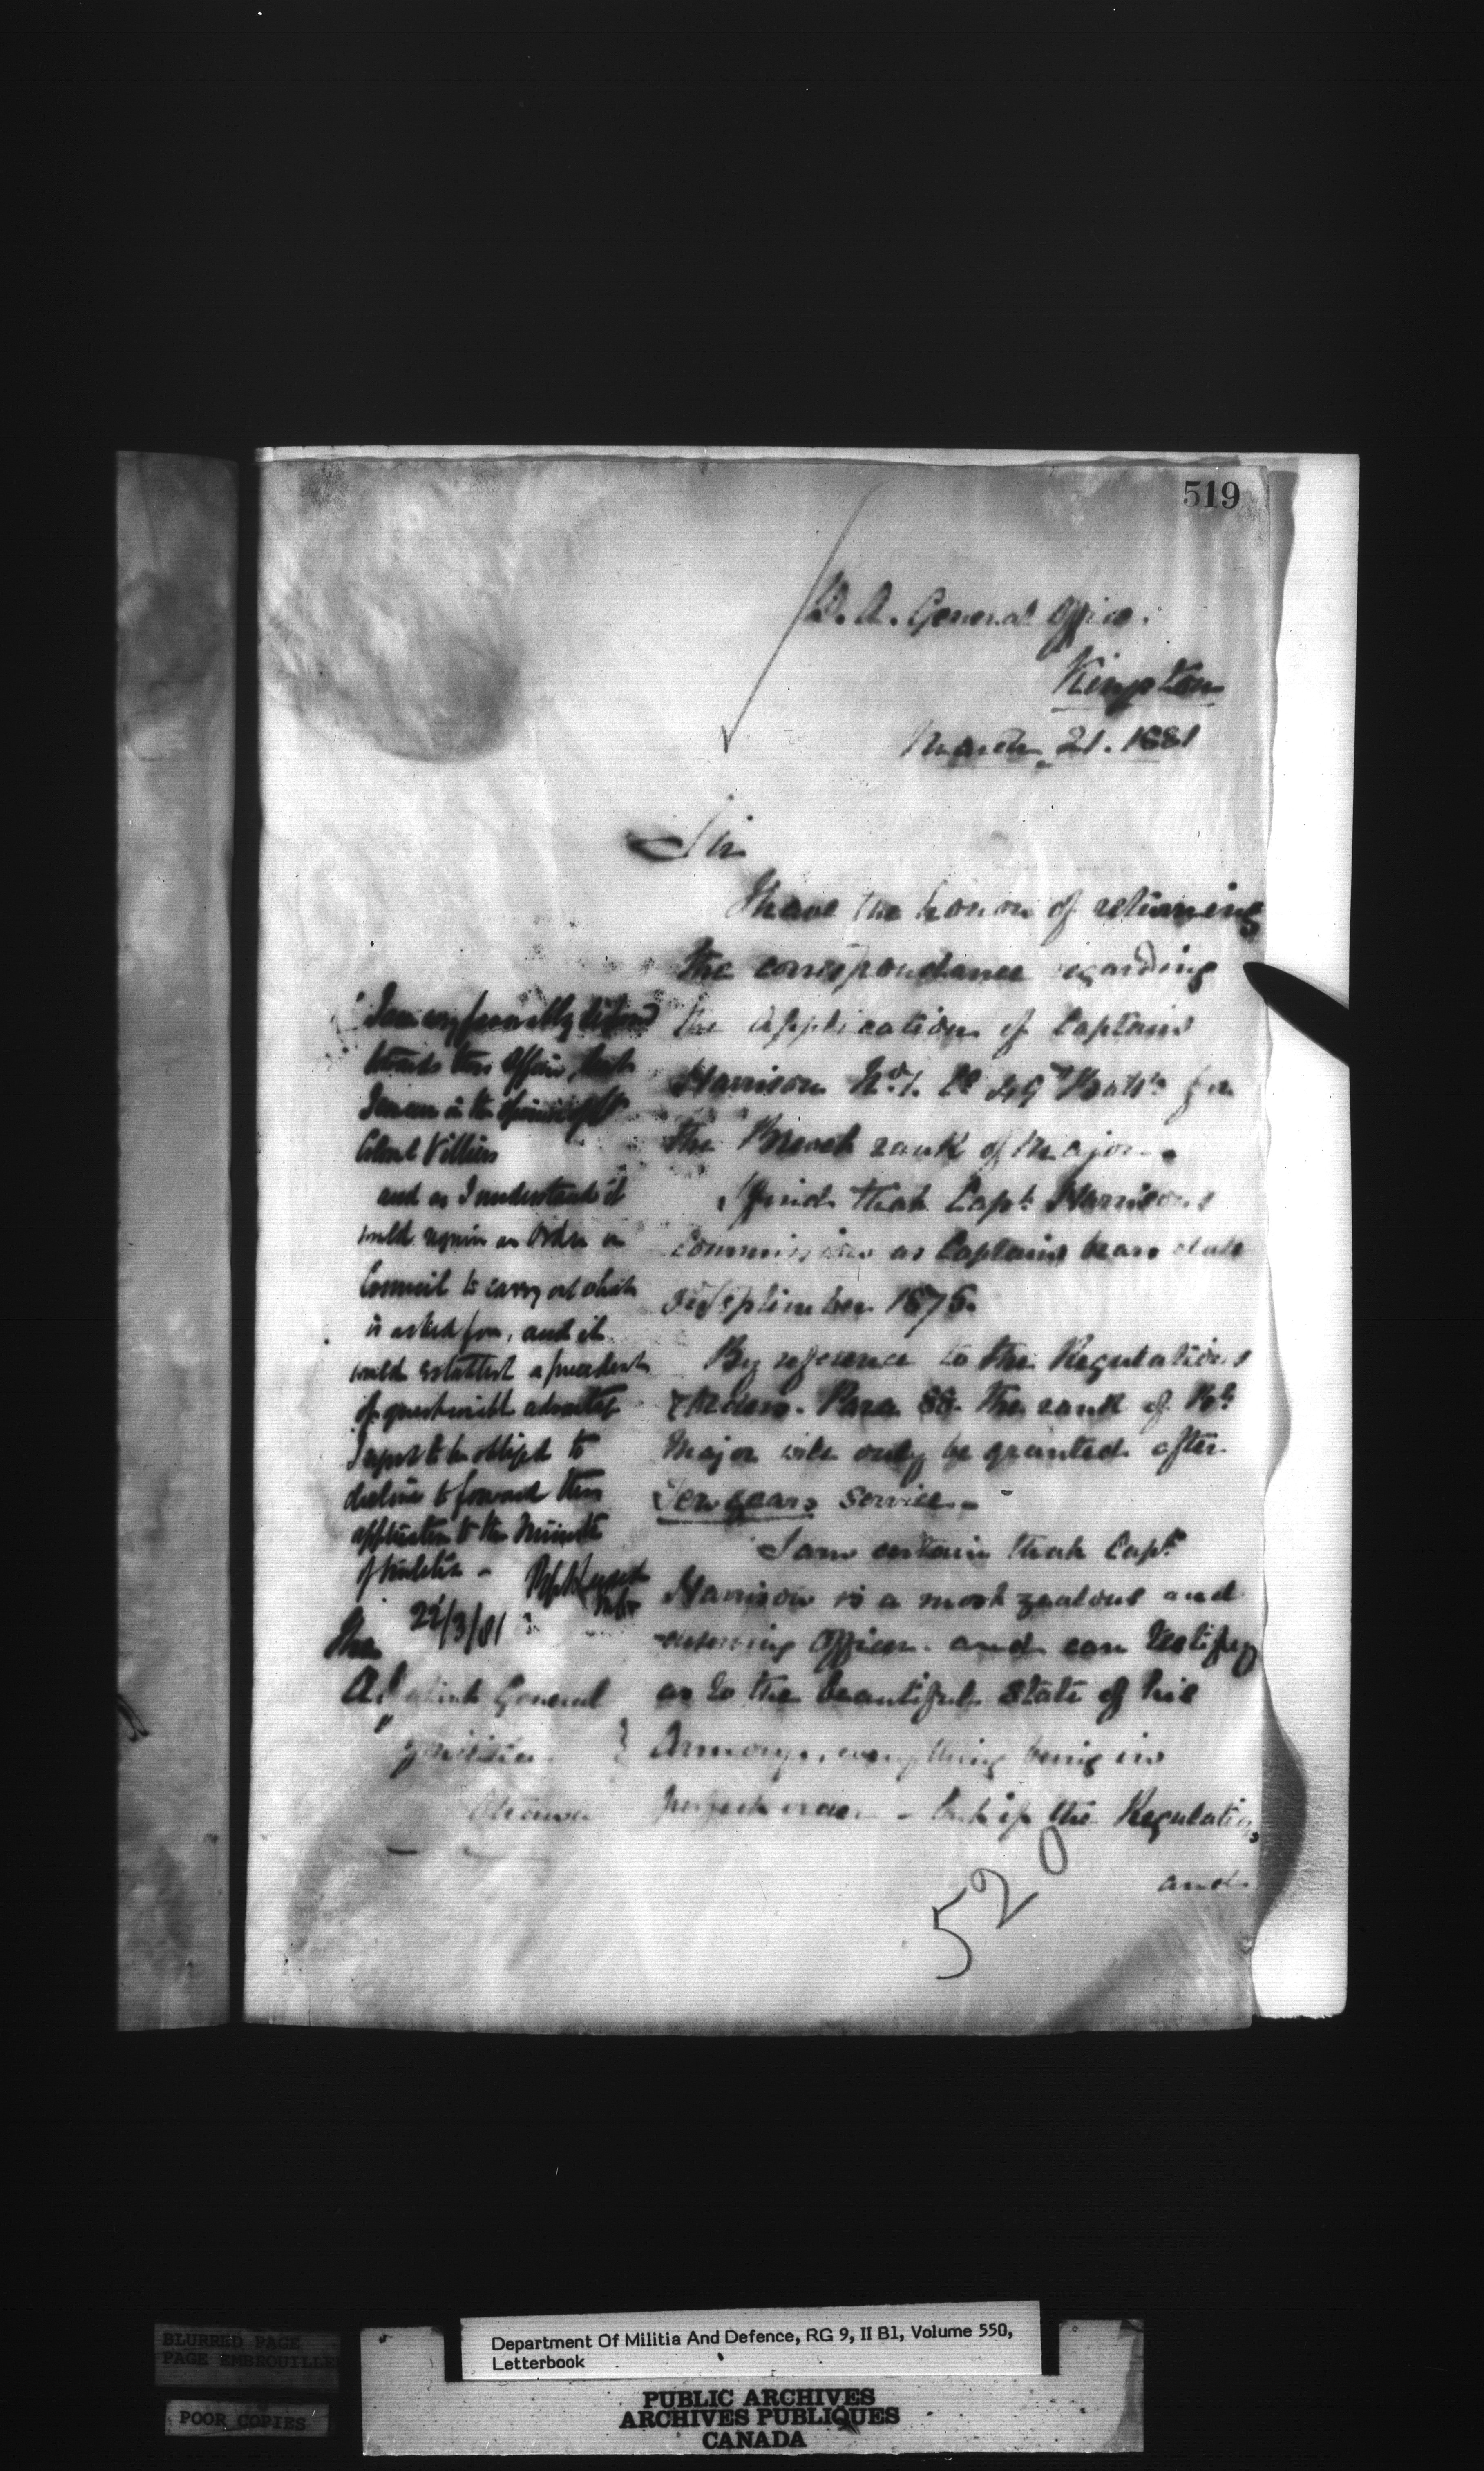 519
D. A. General Office.
Kingston
March 21. 1881
Sir
I have the honor of returning
the correspondance regarding
the application of Captain
Harrison No. 1. Co 49th Battn for
the Brevet rank of Major.
I find that Capt Harrison's
Commission as Captain bears date
September 1875.
By reference to the Regulations
& Orders. Para 88. the rank of Bt
Major will only be granted after
Ten years Service.-
I am certain that Capt
Harrison is a most zealous and
deserving Officer. and can testify
as to the beautiful state of his
Armoury, everything being in
perfect order - but if the Regulations
and
I am very favorably disposed
towards this affair, but
I concur in the opinion of Lt
Colonel Villiers
and as I understand it
would require an Order in
Council to carry out what
is asked for, and it
would establish a precedent
of questionable advantage
I regret to be obliged to
decline to forward this
application to the Minister
of Militia -
22/3/81
The
Adjutant General
of Militia
Ottawa
520
BLURRED PAGE
PAGE EMBROUILLEE
POOR COPIES
Department Of Militia And Defence, RG 9, II B1, Volume 550,
Letterbook
PUBLIC ARCHIVES
ARCHIVES PUBLIQUES
CANADA